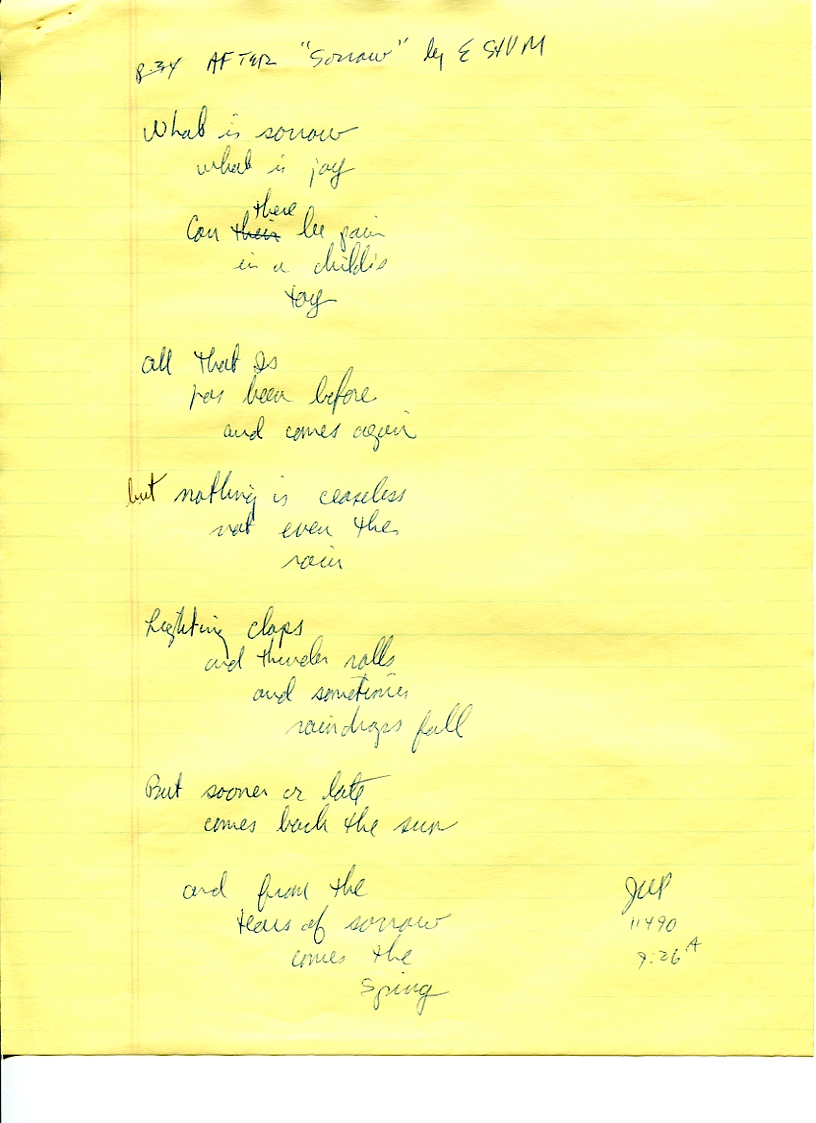 AFTER "Sorrow" by E StVM
What is sorrow
what is joy
there
Can their be pain
in a child's
toy
all that Is
has been before
and comes again
but nothing is ceaseless
not even the
rain
Lighting claps
and thunder rolls
and sometimes
raindrops fall
But sooner or late
comes back the sun
and from the
tears of sorrow
comes the
Spring
JWP
11490
9:26 A